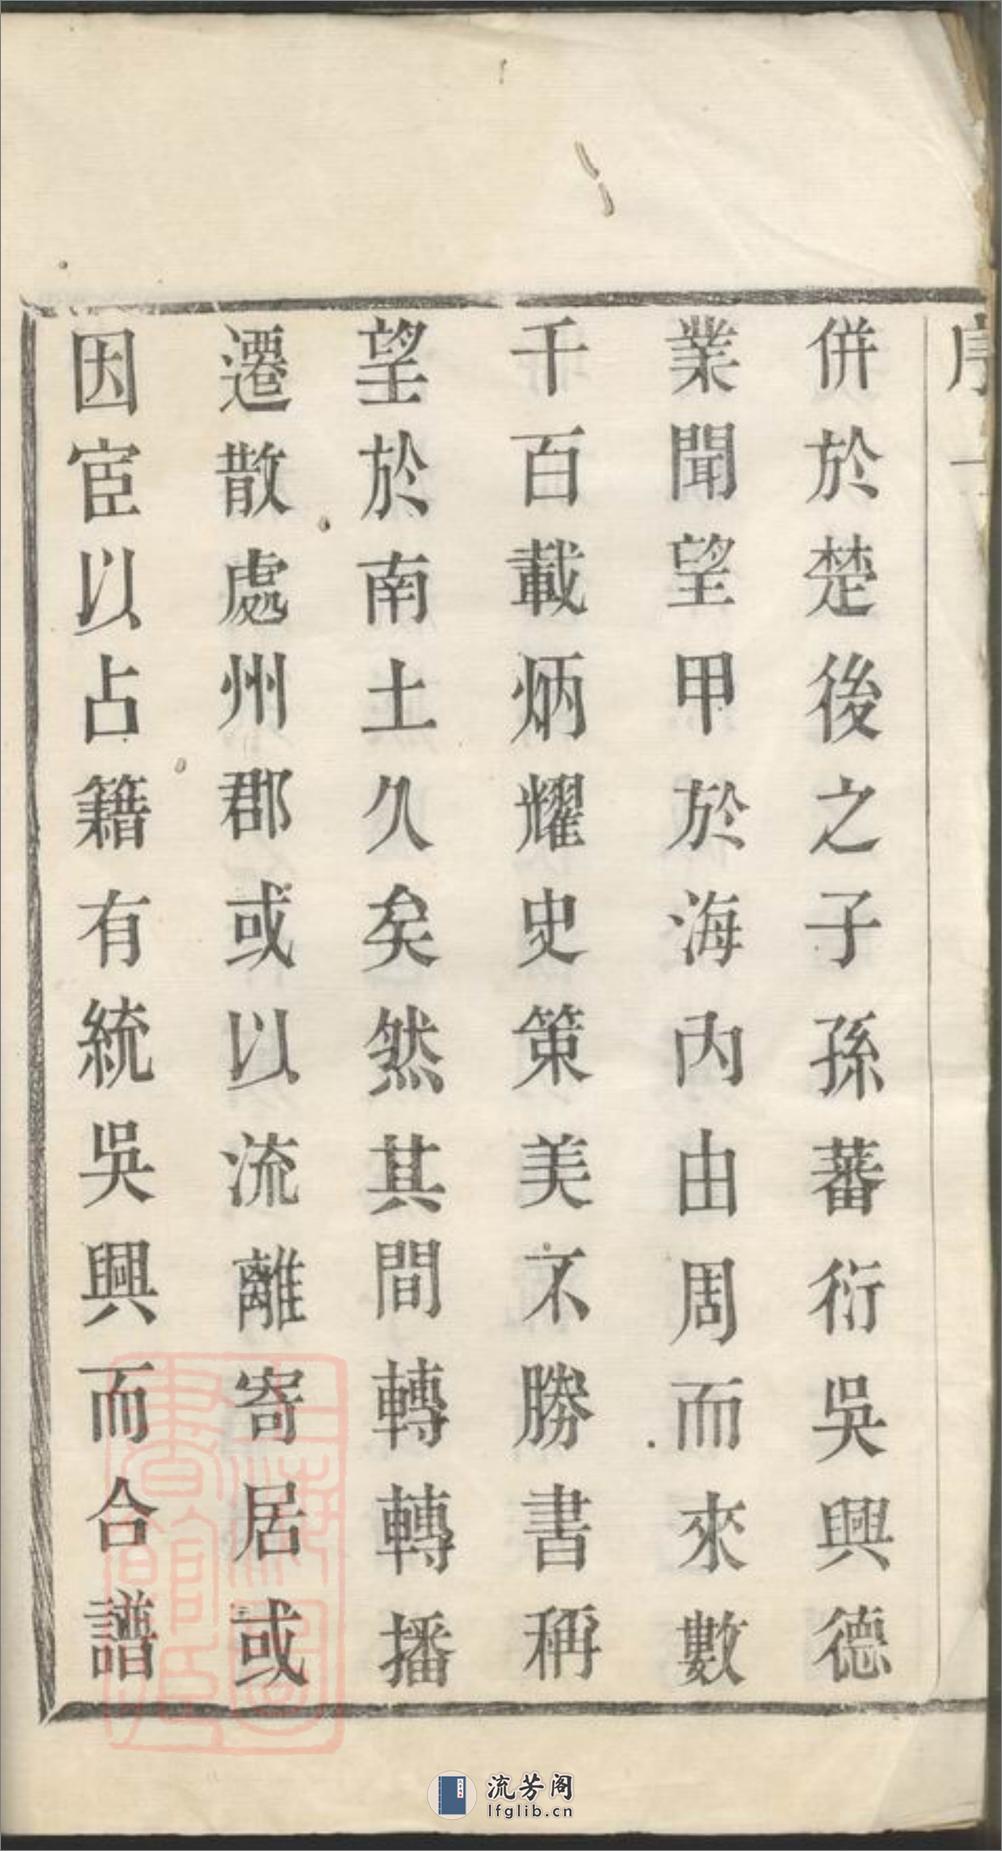 序
併於楚後之子孫蕃衍吳興德
業聞望甲於海內由周而來數
千百載炳耀史策美不勝書稱
望於南土久矣然其間轉轉播
遷散處州郡或以流離寄居或
因宦以占籍有統吳興而合譜
上海圖
書館藏
流芳阁
lfglib.cn